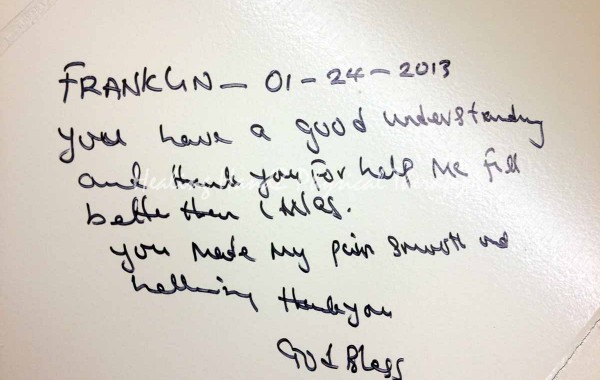 FRANKLIN - 01-24-2013
you have a good understanding
and thank you for help me fill
better then I was.
you made my pain smooth and
thank you
God Bless